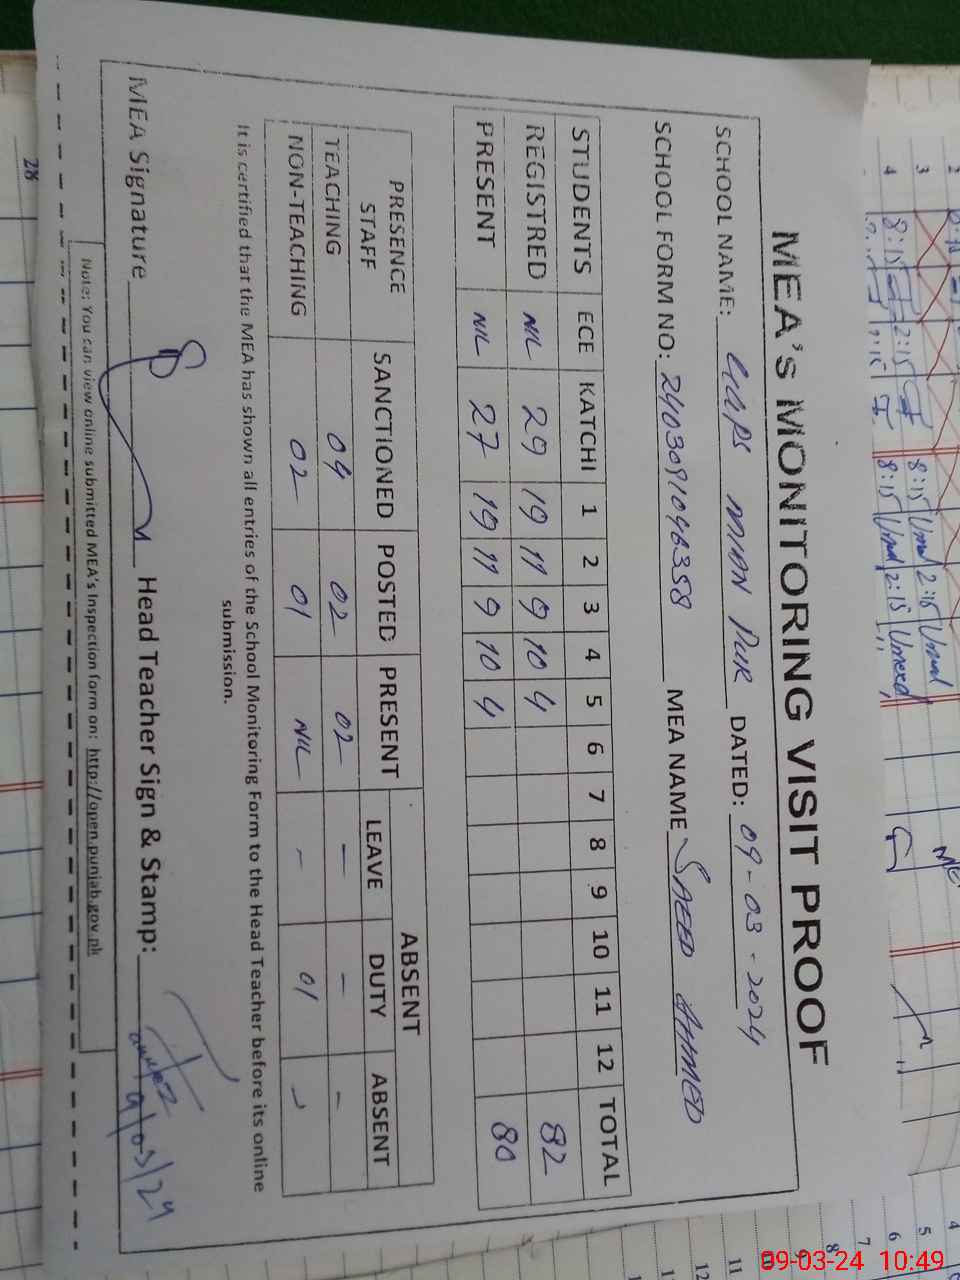 MEA's MONITORING VISIT PROOF
SCHOOL NAME: GGPS MIAN PUR DATED: 09-03-2024
SCHOOL FORM NO: MEA NAME SAEED AHMED
STUDENTS ECE KATCHI 1 2 3 4 5 6 7 8 9 10 11 12 TOTAL
REGISTRED NIL 29 19 11 9 10 4 82
PRESENT NIL 27 19 11 9 10 4 80
PRESENCE STAFF SANCTIONED POSTED PRESENT ABSENT
LEAVE DUTY ABSENT
TEACHING 04 02 02 - - -
NON-TEACHING 02 01 NIL - 01 -
It is certified that the MEA has shown all entries of the School Monitoring Form to the Head Teacher before its online
submission.
MEA Signature Head Teacher Sign & Stamp:
9/03/24
Note: You can view online submitted MEA's Inspection form on: http://open.punjab.gov.pk
28
2
3
4
8:15 2:15
8:15 2:15
8:15 2:15
4
5
6
7
8
9
10
11
12
09-03-24 10:49